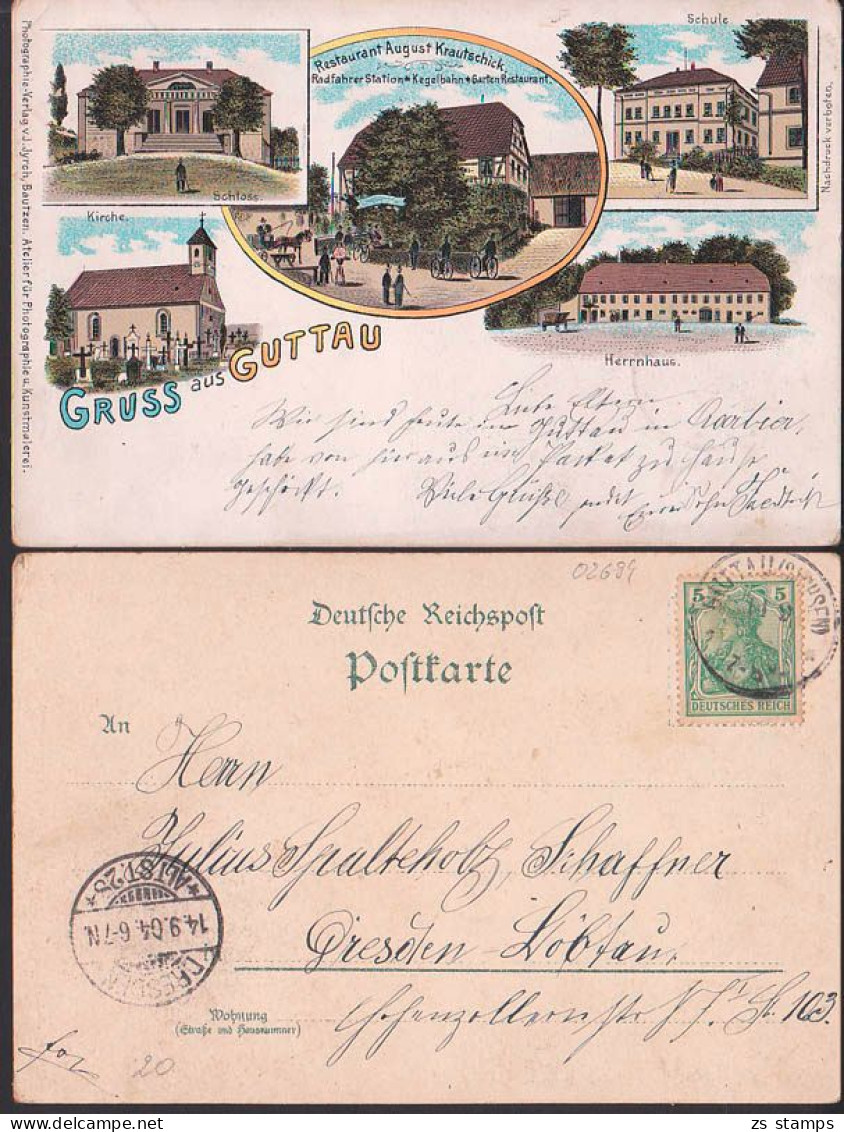 Photographie-Verlag v. I. Jyrch, Bautzen. Atelier für Photographie u. Kunstmalerei.
Schloss.
Restaurant August Krautschick.
Radfahrer Station * Kegelbahn * Garten Restaurant.
Schule
Nachdruck verboten.
Kirche.
Herrnhaus.
GRUSS aus GUTTAU
Liebe Eltern
Wir sind heute in Guttau in
habe von hier aus ein Packet zu Hause
geschickt. Viele Grüße sendet Euer Sohn
02684
Deutsche Reichspost
Postkarte
5 5
DEUTSCHES REICH
An
Herrn
Julius Spalteholz, Schaffner
Dresden-Löbtau,
Hohenzollernstr. 103.
Wohnung
(Straße und Hausnummer)
* ALTST. 28 *
14.9.04. 6-7N
DRESDEN
20
zs stamps